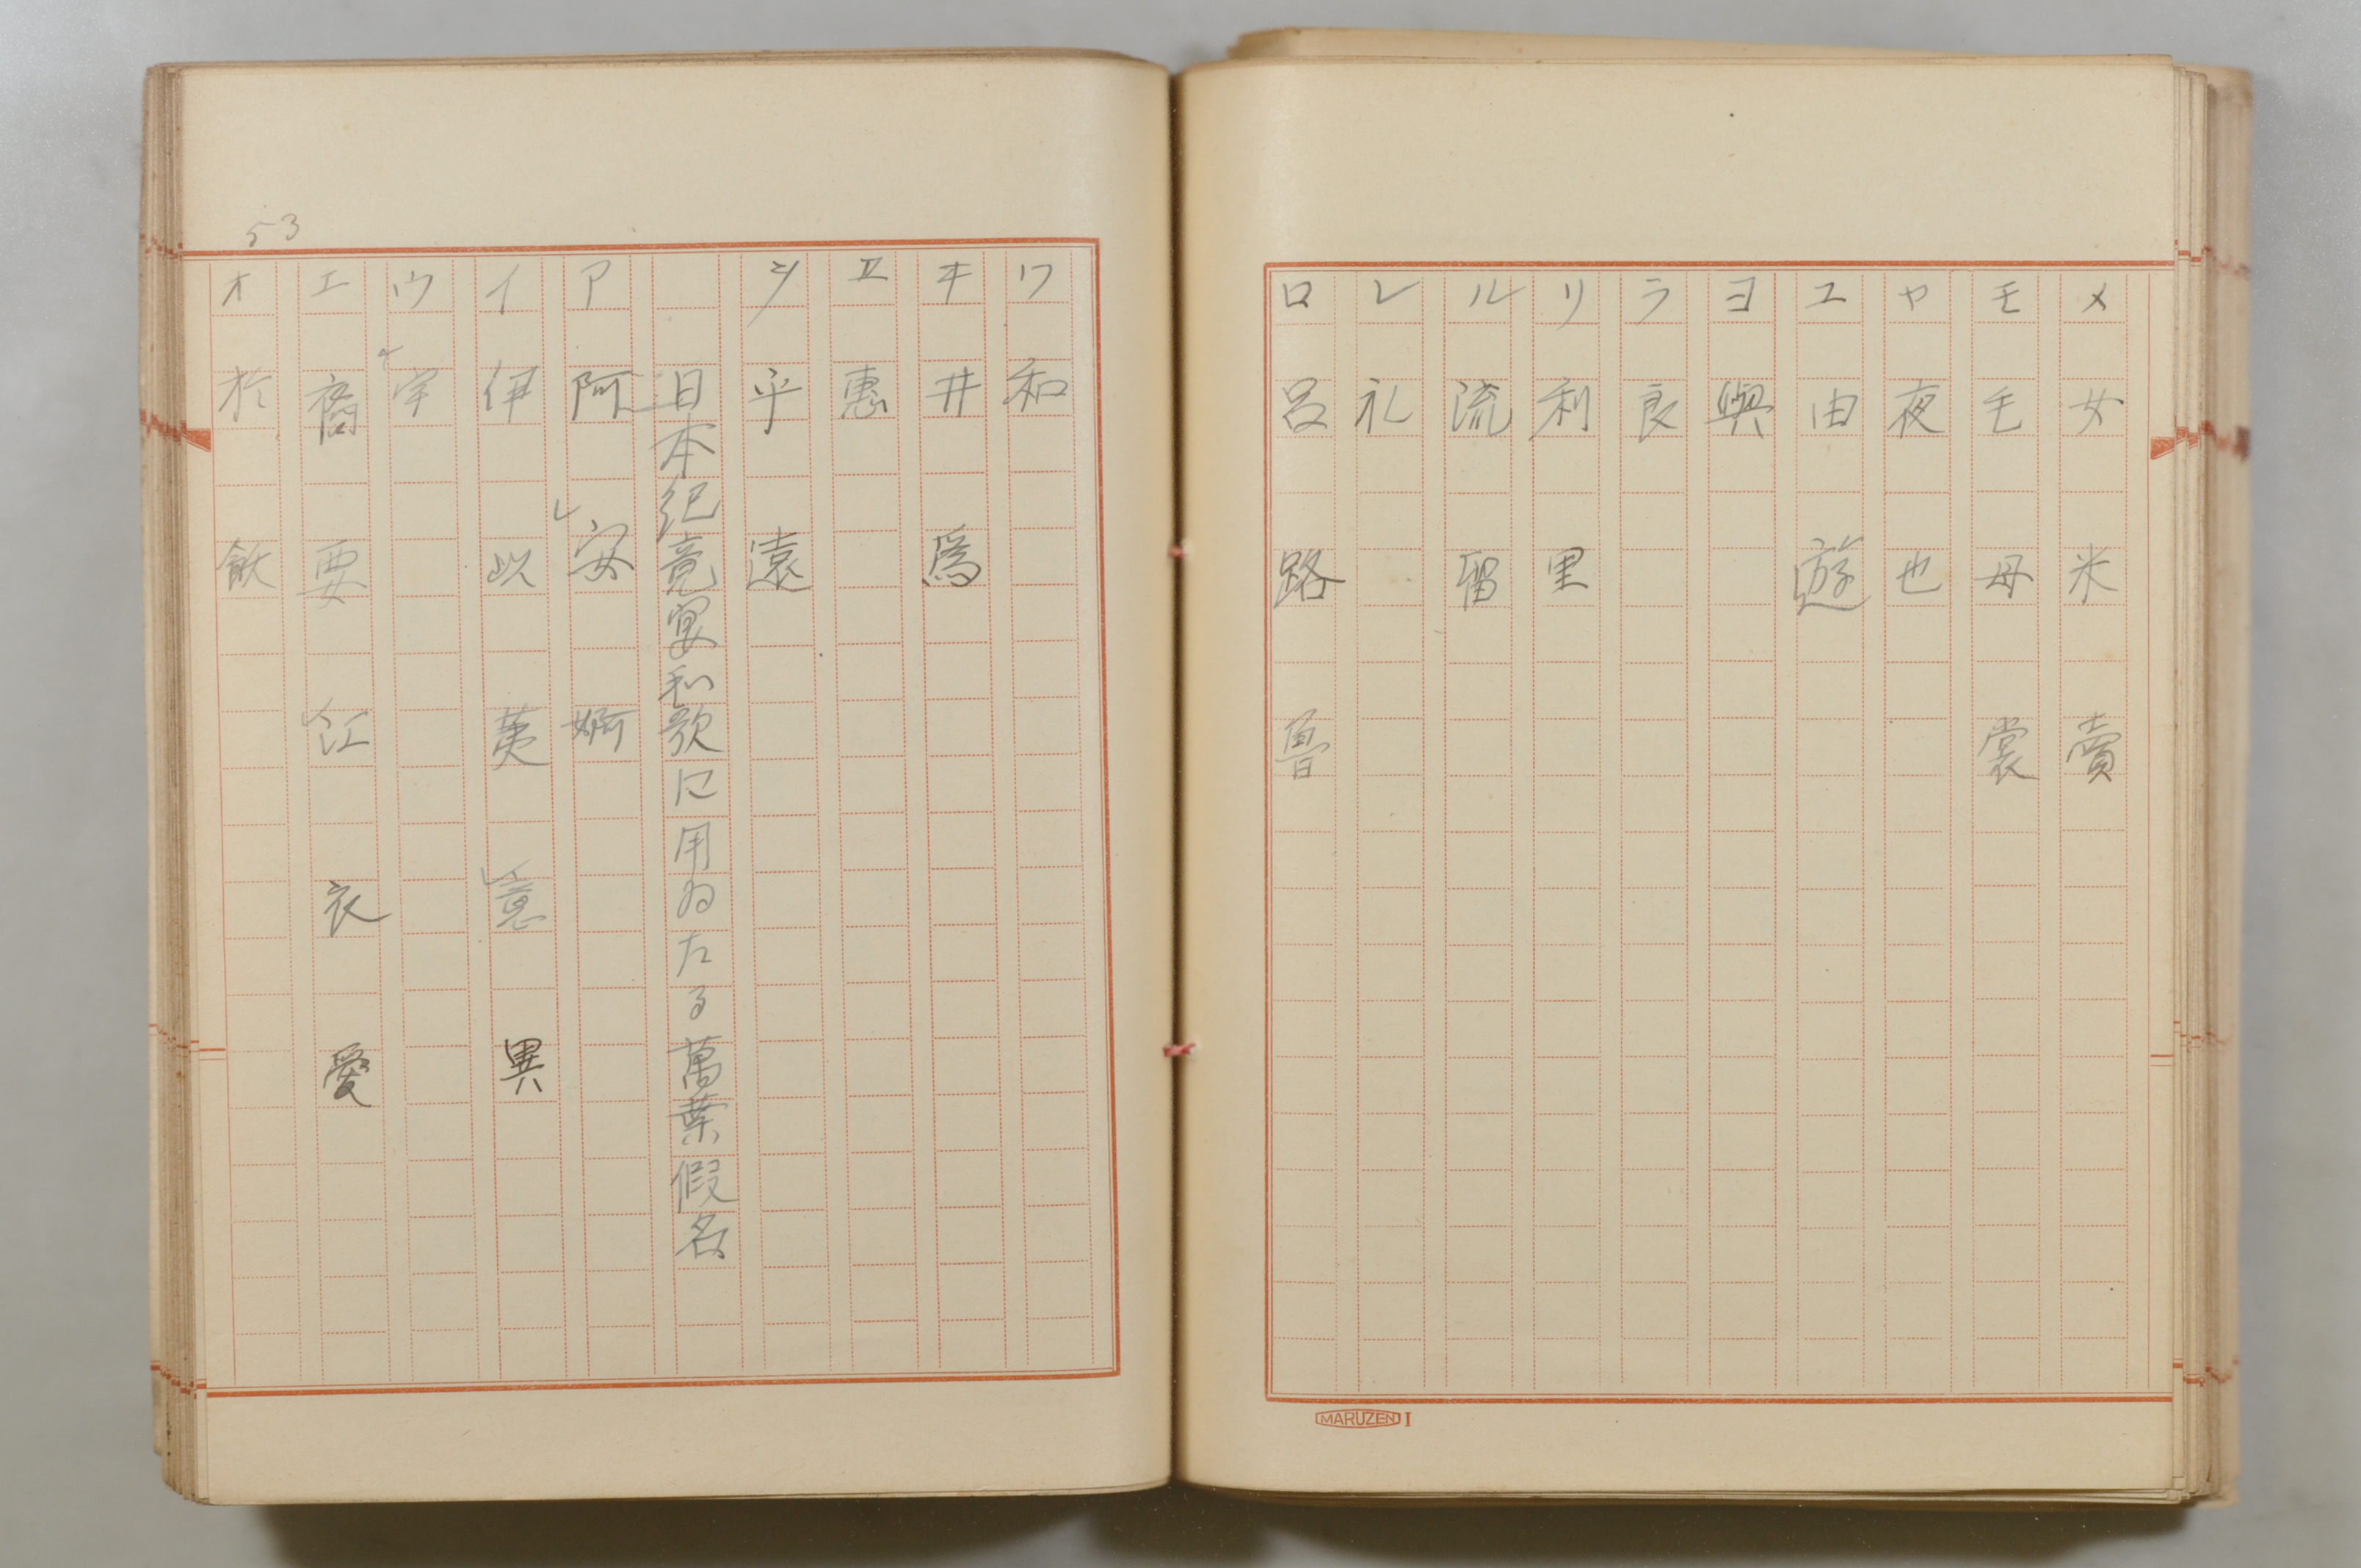 メ 女 米 賣
モ 毛 母 裳
ヤ 夜 也
ユ 由 遊
ヨ 與
ラ 良
リ 利 里
ル 流 留
レ 礼
ロ 呂 路 魯
MARUZEN I
ワ 和
ヰ 井 爲
ヱ 惠
ヲ 乎 遠
日本紀竟宴和歌に用ゐたる萬葉假名
ア 阿 安 婀
イ 伊 以 荑 意 異
ウ 宇
エ 要 江 衣 愛
オ 於 飫
53